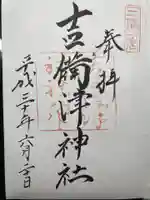 奉拝
吉備津神社
平成三十年六月二日